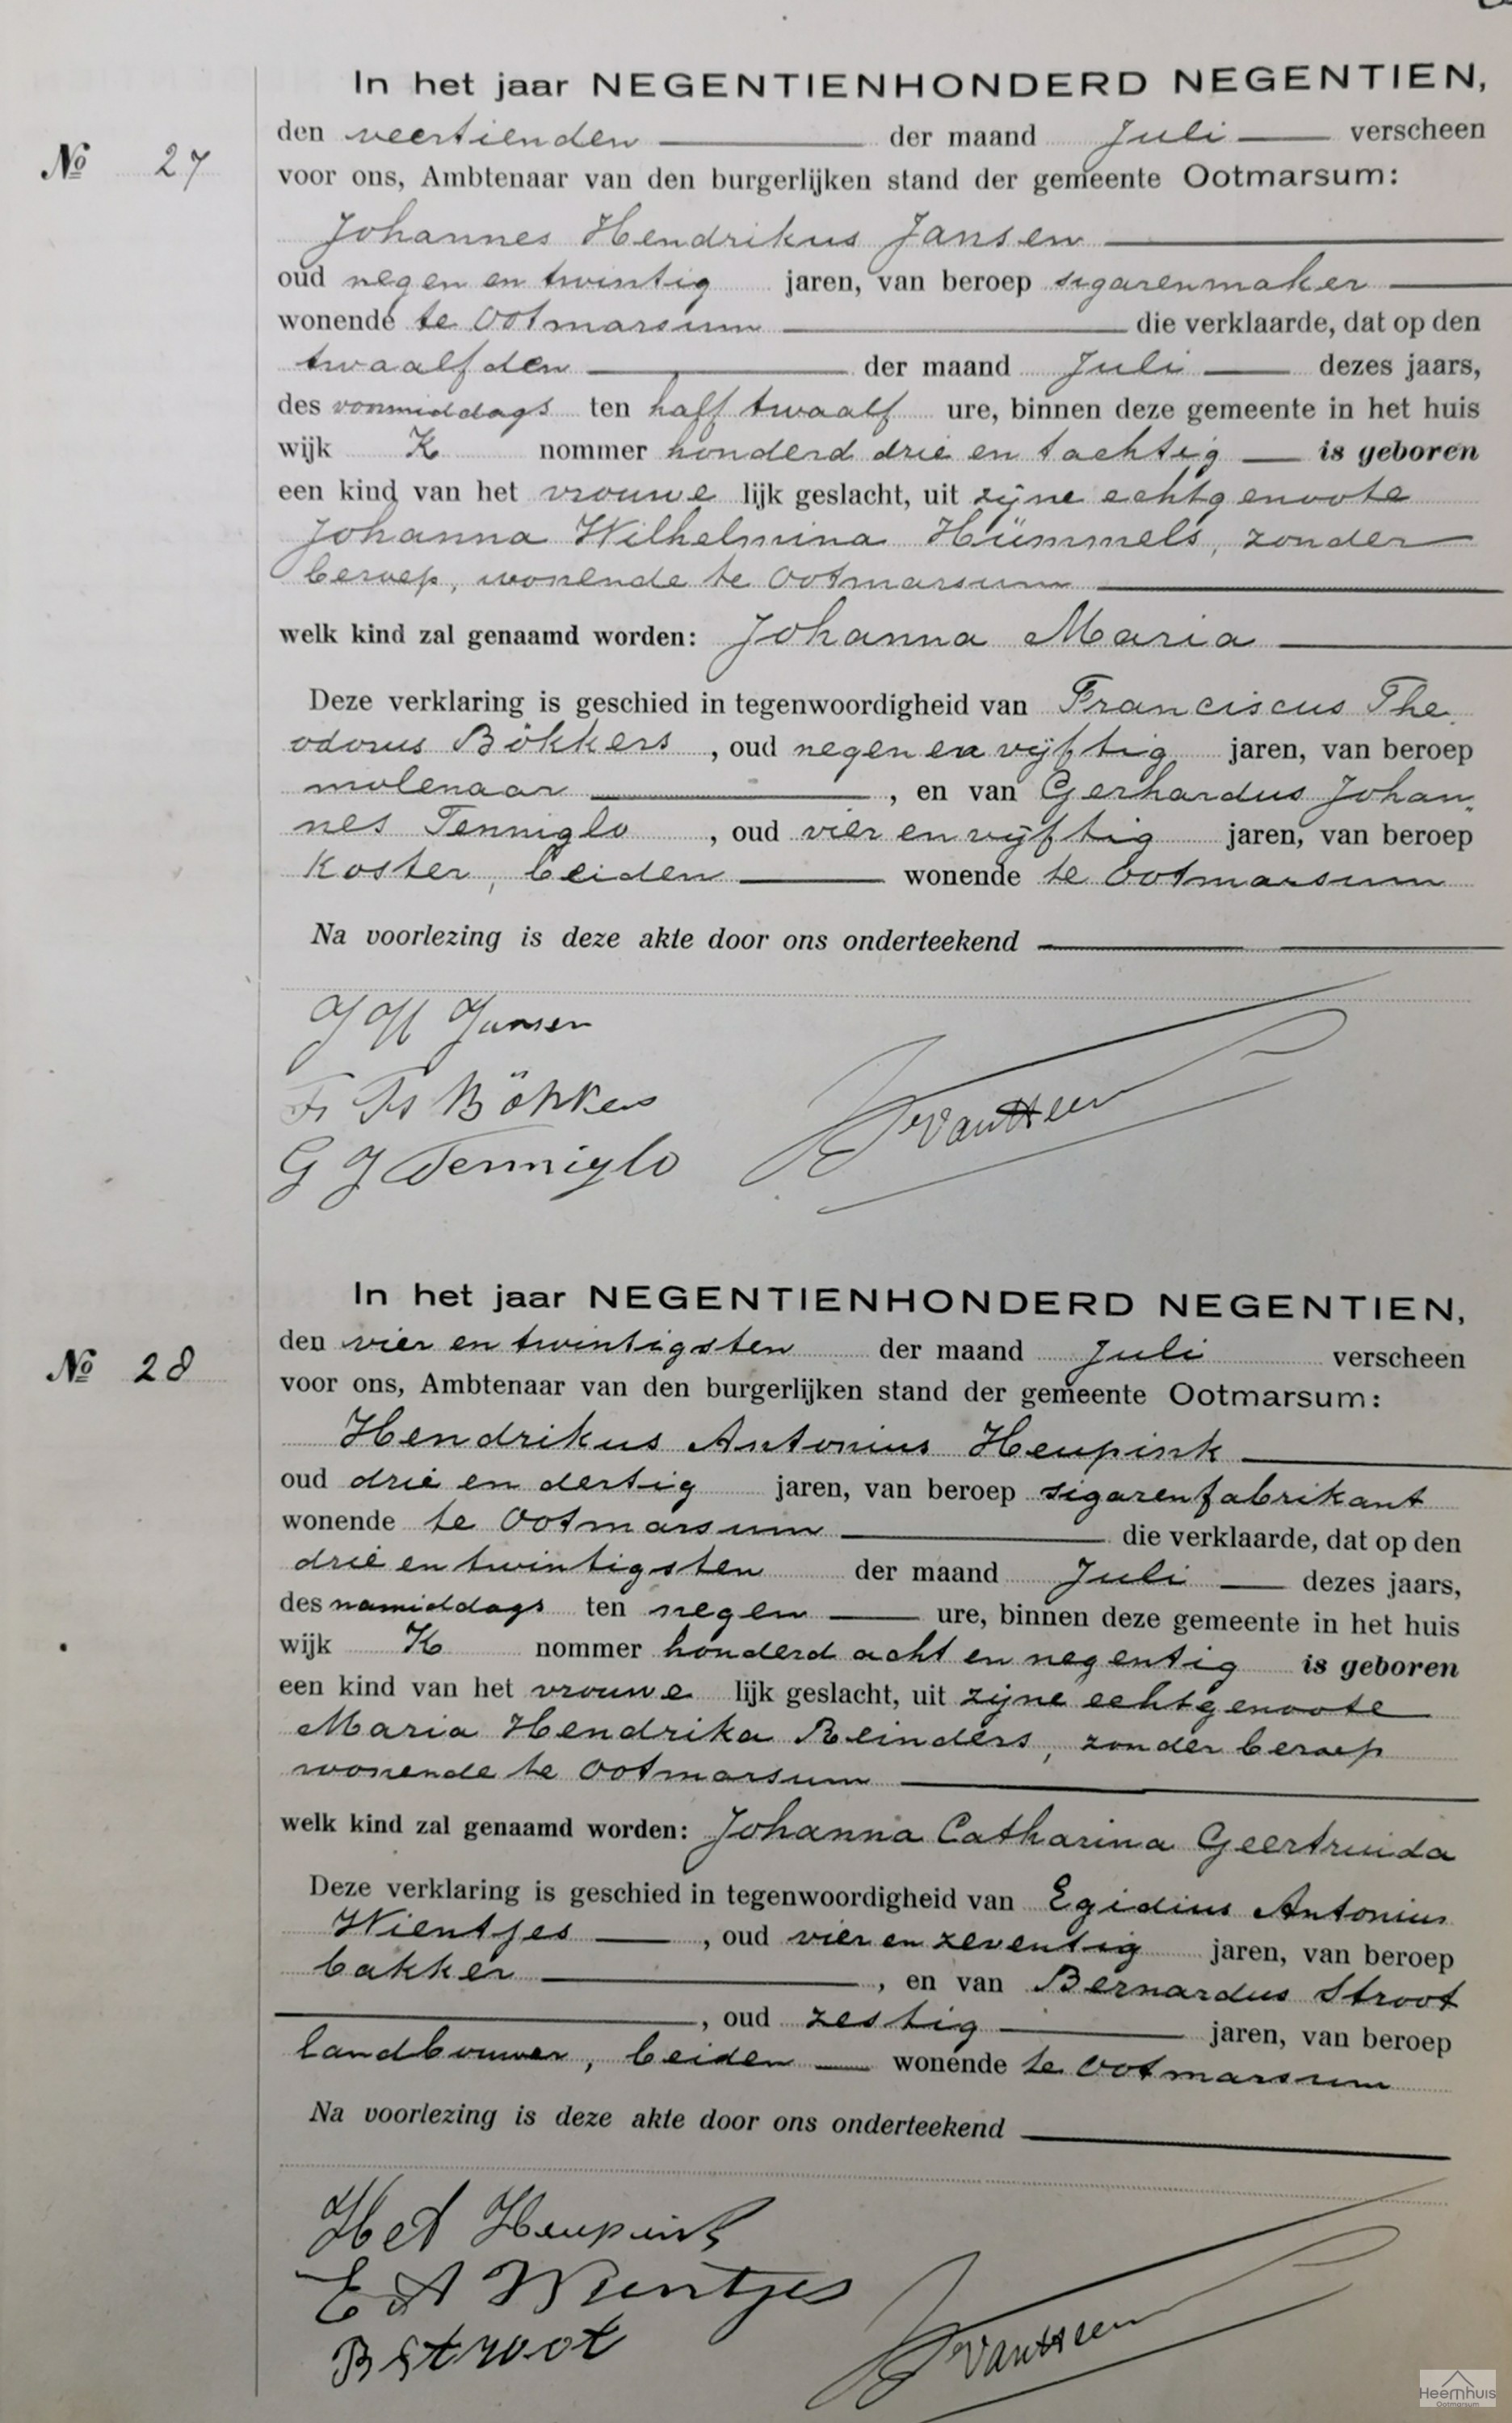 In het jaar NEGENTIENHONDERD NEGENTIEN,
den veertienden der maand Juli verscheen
No 27
voor ons, Ambtenaar van den burgerlijken stand der gemeente Ootmarsum:
Johannes Hendrikus Jansen
oud negen en twintig jaren, van beroep sigarenmaker
wonende te Ootmarsum die verklaarde, dat op den
twaalfden der maand Juli dezes jaars,
des voormiddags ten half twaalf ure, binnen deze gemeente in het huis
wijk K nommer honderd drie en tachtig is geboren
een kind van het vrouwe lijk geslacht, uit zijne echtgenoote
Johanna Wilhelmina Hümmels, zonder
beroep, wonende te Ootmarsum
welk kind zal genaamd worden: Johanna Maria
Deze verklaring is geschied in tegenwoordigheid van Franciscus The
odorus Bökkers, oud negen en vijftig jaren, van beroep
molenaar, en van Gerhardus Johan
nes Tenniglo, oud vier en vijftig jaren, van beroep
Koster, beiden wonende te Ootmarsum
Na voorlezing is deze akte door ons onderteekend
J H Jansen
F Ts Bökkers
G J Tenniglo
In het jaar NEGENTIENHONDERD NEGENTIEN,
den vier en twintigsten der maand Juli verscheen
No 28
voor ons, Ambtenaar van den burgerlijken stand der gemeente Ootmarsum:
Hendrikus Antonius Heupink
oud drie en dertig jaren, van beroep sigarenfabrikant
wonende te Ootmarsum die verklaarde, dat op den
drie en twintigsten der maand Juli dezes jaars,
des namiddags ten negen ure, binnen deze gemeente in het huis
wijk K nommer honderd acht en negentig is geboren
een kind van het vrouwe lijk geslacht, uit zijne echtgenoote
Maria Hendrika Reinders, zonder beroep
wonende te Ootmarsum
welk kind zal genaamd worden: Johanna Catharina Geertruida
Deze verklaring is geschied in tegenwoordigheid van Egidius Antonius
Wientjes, oud vier en zeventig jaren, van beroep
bakker, en van Bernardus Stroot
, oud zestig jaren, van beroep
landbouwer, beiden wonende te Ootmarsum
Na voorlezing is deze akte door ons onderteekend
Heupink
E A Wientjes
B Stroot
Heemhuis
Ootmarsum